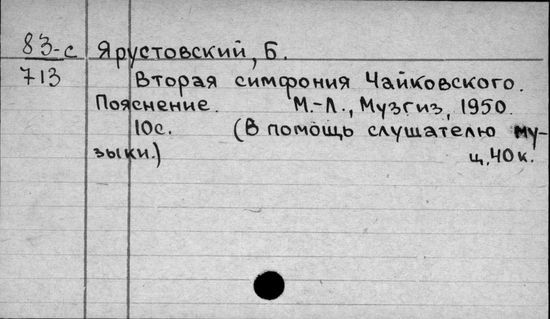 83-с Ярустовский, Б.
713 Вторая симфония Чайковского.
Пояснение. М.-Л., Музгиз, 1950.
10с. (В помощь слушателю му-
зыки.) ц. 40 к.